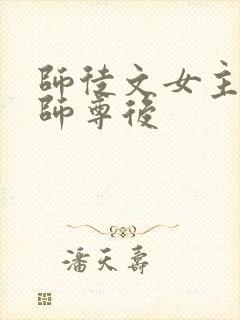 師徒文女主
師尊後
潘天壽